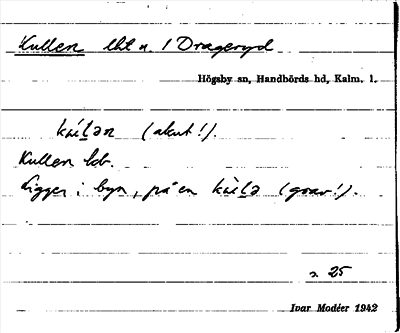 Kullen lht n. 1 Drageryd
Högsby sn, Handbörds hd, Kalm. l.
(akut!).
Kullen kb.
Ligger i byn, på en (grav!).
s. 25
Ivar Modéer 1942